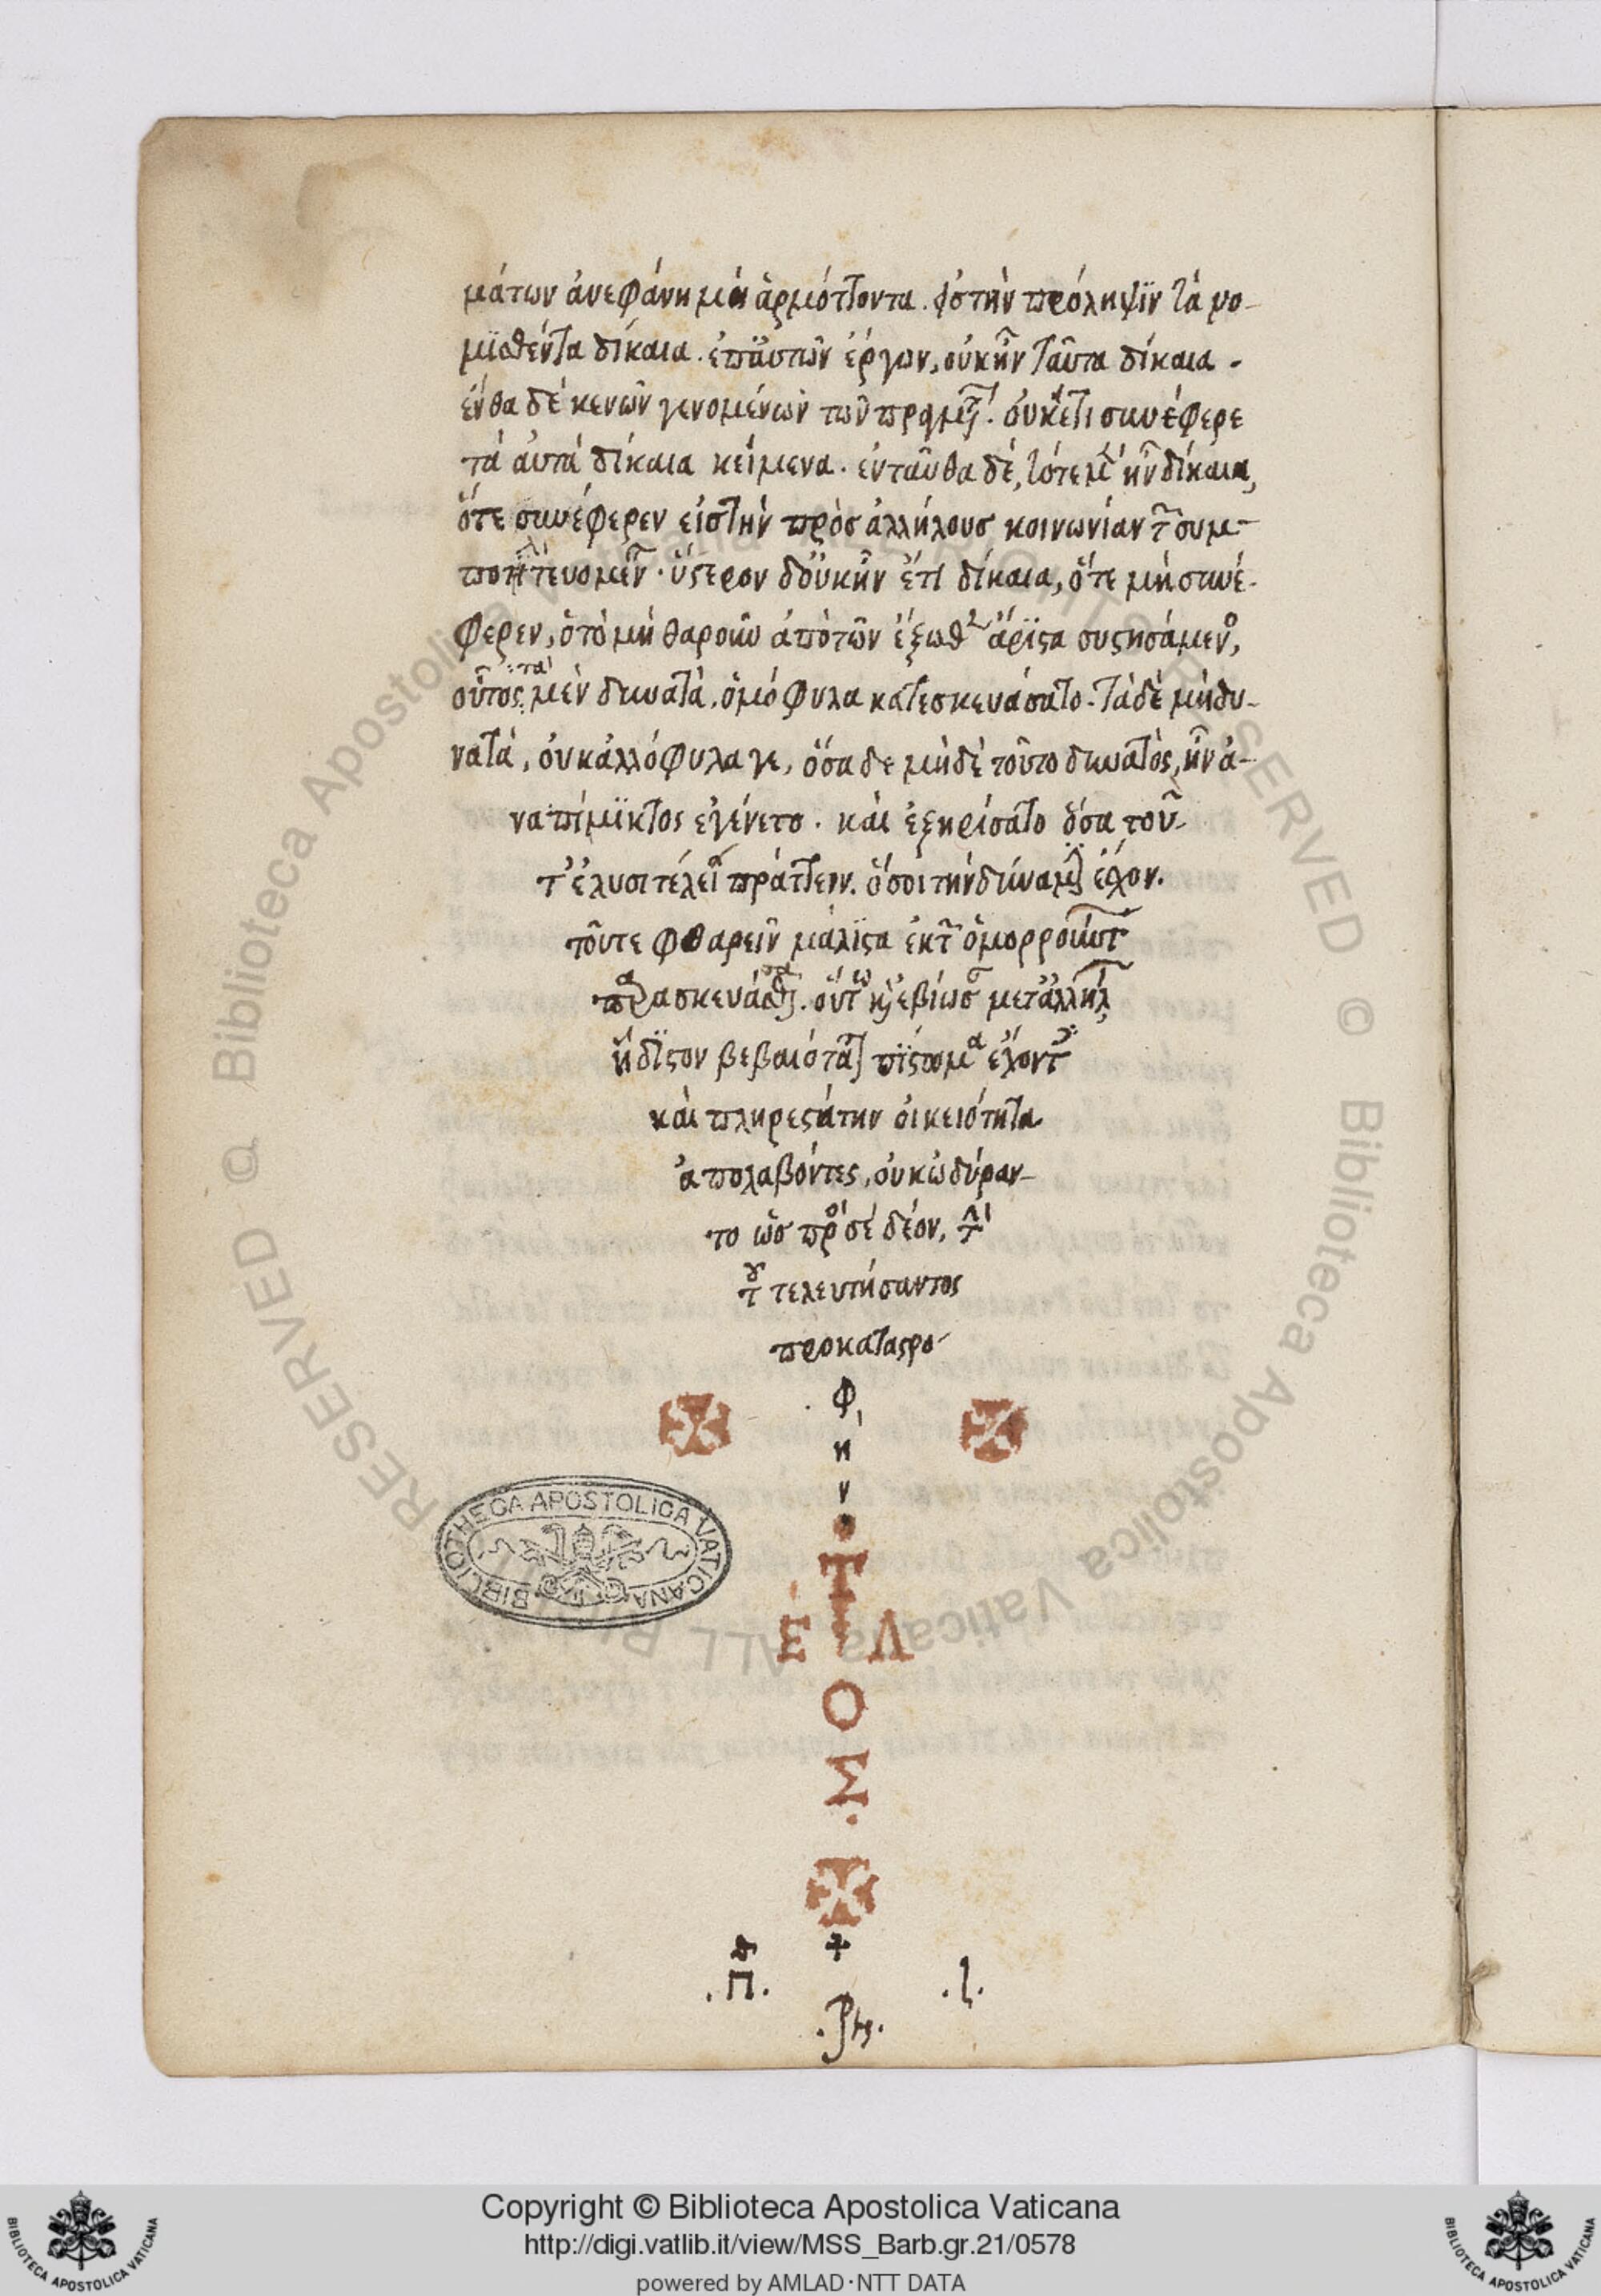 μάτων ἀνεφάνη μὴ ἁρμόττοντα. εἰς τὴν πρόληψϊν τὰ νο-
μϊσθέντα δίκαια. ἐπ' αὐτῶν ἔργων, οὐκ ἦν ταῦτα δίκαια.
ἔνθα δὲ κενῶν γενομένων τῶν πραγμάτων. οὐκέτι συνέφερε
τὰ αὐτὰ δίκαια κείμενα. ἐνταῦθα δὲ, τότε μὲν ἦν δίκαια,
ὅτε συνέφερεν εἰς τὴν πρὸς ἀλλήλους κοινωνίαν τῶν συμ-
πολιτευομένων. ὕστερον δ' οὐκ ἦν ἔτι δίκαια, ὅτε μὴ συνέ-
φερεν, ὁ τὸ μὴ θαρροῦν ἀπὸ τῶν ἔξωθεν ἄρϊστα συστησάμενος,
οὗτος τὰ μὲν δυνατὰ, ὁμόφυλα κατεσκευάσατο. τὰ δὲ μὴ δυ-
νατὰ, οὐκ ἀλλόφυλα γε, ὅσα δε μὴδὲ τοῦτο δυνατὸς, ἦν ἀ-
νεπίμϊκτος ἐγένετο. καὶ ἐξηρίσατο ὅσα τοῦ-
τ' ἐλυσιτέλει πράττειν. ὅσοι τὴν δύναμιν ἔσχον.
τοῦ τε θαρρεῖν μάλϊστα ἐκ τῶν ὁμορρούντων
παρασκευάσασθαι. οὕτω καὶ ἐβίωσαν μετ' ἀλλήλων
ἥδϊστον βεβαιότατον πϊστωμα ἔχοντες
καὶ πληρεστάτην οἰκειότητα
ἀπολαβόντες, οὐκ ὠδύραν-
το ὡς πρὸς ἔλεον, τὴν
τοῦ τελευτήσαντος
προκαταστρο-
φ
ή
ν
.
Τ
Ε Λ
Ο
Σ
.
+
.Π. .ζ.
BIBLIOTHECA APOSTOLICA VATICANA
BIBL
Copyright © Biblioteca Apostolica Vaticana
http://digi.vatlib.it/view/MSS_Barb.gr.21/0578
powered by AMLAD·NTT DATA
BIBLIOTECA APOSTOLICA VATICANA
BIBLIOTECA APOSTOLICA VATICANA
© Biblioteca Apostolica Vaticana ALL RIGHTS RESERVED